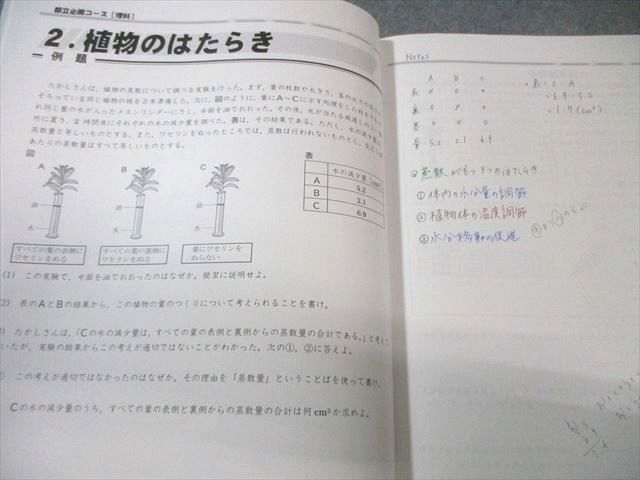 都立必勝コース［理科］
2．植物のはたらき
例題
たかしさんは，植物の蒸散について調べる実験を行った。まず，葉の枚数や大きさ，茎の太さや
そろっている同じ植物の枝を3本準備した。次に，図のように，葉にA～Cに示す処理をした枝を
れ同じ量の水が入ったメスシリンダーにうし，水面を油でおおった。その後，光が当たる
所に置き，2時間後にそれぞれの水の減少量を調べた。表は，その結果である。ただし，水の減少量
蒸散量と等しいものとする。また，ワセリンをぬったところでは，蒸散は行われないものとし，
あたりの蒸散量はすべて等しいものとする。
図
A
B
C
油
水
油
水
油
水
すべての葉の表側に
ワセリンをぬる
すべての葉の裏側に
ワセリンをぬる
葉にワセリンを
ぬらない
表
水の減少量〔cm³〕
A 5.2
B 2.1
C 6.9
(1) この実験で，水面を油でおおったのはなぜか。簡潔に説明せよ。
(2) 表のAとBの結果から，この植物の葉のつくりについて考えられることを書け。
たかしさんは，「Cの水の減少量は，すべての葉の表側と裏側からの蒸散量の合計である。」と考えて
いたが，実験の結果からこの考えが適切ではないことがわかった。次の①，②に答えよ。
この考えが適切ではなかったのはなぜか。その理由を「蒸散量」ということばを使って書け。
Cの水の減少量のうち，すべての葉の表側と裏側からの蒸散量の合計は何cm³か求めよ。
Notes
A B C
表 × ○ ○
裏 ○ × ○
茎 ○ ○ ○
5.2 2.1 6.9
・表：C－A
＝6.9－5.2
＝1.7(cm³)
蒸散がもつ3つのはたらき
①体内の水分量の調節
②植物体の温度調節
③水分移動の促進